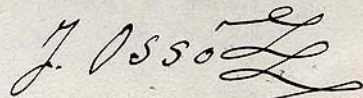 J. Ossó